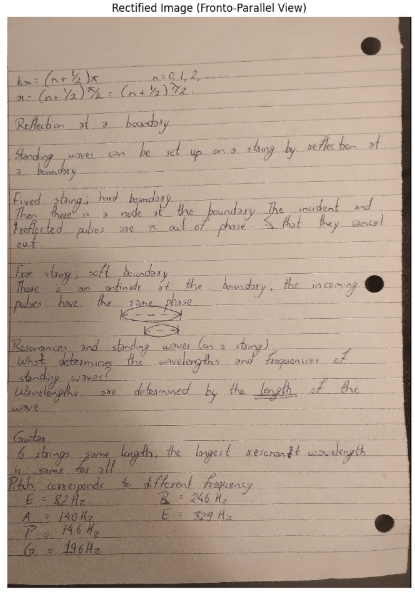 Rectified Image (Fronto-Parallel View)
kx = (n + 1/2)π n = 0, 1, 2, ...
x = (n + 1/2) π/k = (n + 1/2) λ/2
Reflection at a boundary
Standing waves can be set up on a string by reflection at
a boundary
Fixed string; hard boundary
Then there is a node at the boundary. The incident and
reflected pulses are π out of phase so that they cancel
out.
Free string; soft boundary
There is an antinode at the boundary, the incoming
pulses have the same phase
Resonances and standing waves (on a string)
What determines the wavelengths and frequencies of
standing waves?
Wavelengths are determined by the length of the
wave
Guitar
6 strings same length, the longest resonant wavelength
is same for all
Pitch corresponds to different frequency
E = 82 Hz B = 246 Hz
A = 110 Hz E = 329 Hz
D = 146 Hz
G = 196 Hz